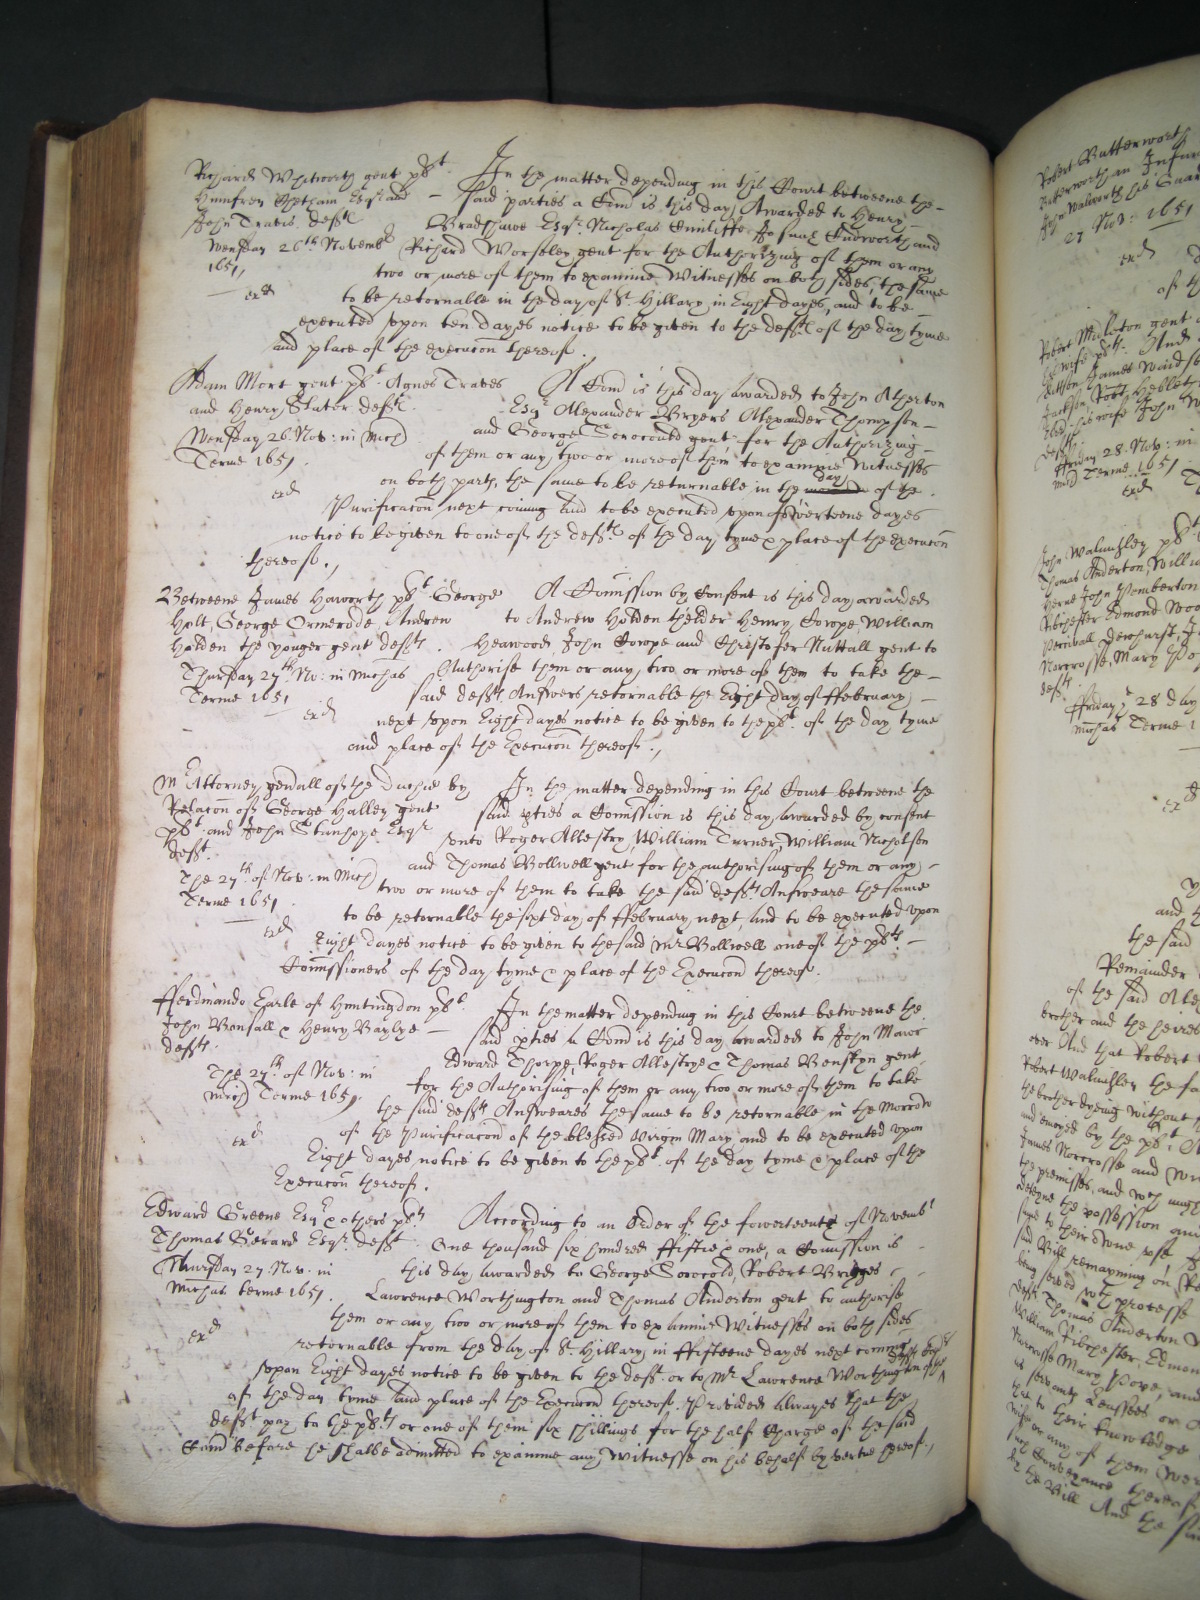 Richard Whitworth gent plt
Humfrey Chetham Esq and
John Travis deft
Wensday 26th Novembr
1651
exd
In the matter depending in this Court betweene the
said parties a Comd is this day Awarded to Henry
Bradshawe Esqr. Nicholas Cunliffe Josuah Cudworth and
Richard Worseley gent for the Authorizing of them or any
two or more of them to examine Witnesses on both sides, the same
to be retornable in the day of St. Hillary in Eight dayes, and to be
executed vpon ten dayes notice to be given to the deft of the day tyme
and place of the execucon thereof.
Adam Mort gent plt. Agnes Traves
and Henry Slater defts.
Wensday 26. Nov: in Mich
Terme 1651.
exd
A Comd is this day awarded to John Atherton
Esqr Alexander Bryers Alexander Thompson
and George Sorocould gent for the Authorizing
of them or any two or more of them to examine Witnesses
on both parts, the same to be returnable in the day of the
Purificacon next coming And to be executed vpon fowerteene dayes
notice to be given to one of the defts. of the day tyme & place of the execucon
thereof.
Betweene James Haworth plt. George
Holt, George Ormerode, Andrew
Holden the yonger gent defts.
Thursday 27th No: in Michas
Terme 1651
exd
A Comission by Consent is this day awarded
to Andrew Holden thelder Henry Cowpe, William
Heawood, John Cowpe and Christofer Nuttall gent to
Authorise them or any two or more of them to take the
said defts Answers retornable the Eight day of ffebruary
next vpon Eight dayes notice to be given to the plt. of the day tyme
and place of the Execucon thereof.
Mr Attorney gen'all of the Duchie by
Relacon of George Halley gent
plt. and John Stanhope Esqr
deft.
The 27th of Nov: in Mich
Terme 1651
exd
In the matter depending in this Court betweene the
said pties a Comission is this day awarded by consent
vnto Roger Allestry, William Turner, William Nicholson
and Thomas Bollwell gent for the authorising of them or any
two or more of them to take the said defts Answeare the same
to be retornable the sixt day of ffebruary next, And to be executed vpon
Eight dayes notice to be given to the said Mr Bollwell one of the plts
Comissioners of the day tyme & place of the Execucon thereof.
fferdinando Earle of Huntingdon plt.
John Bonsall & Henry Baylye
defts.
The 27th of Nov: in
Mich Terme 1651.
exd
In the matter depending in this Court betweene the
said pties A Comd is this day awarded to John Mawe
Edward Thorpe, Roger Allestrye & Thomas Benskyn gent
for the Authorising of them or any two or more of them to take
the said defts Answeares the same to be retornable in the Morrow
of the Purificacon of the blessed Virgin Mary and to be executed vpon
Eight dayes notice to be given to the plt. of the day tyme & place of the
Execucon thereof.
Edward Greene Esqr & others plts
Thomas Gerard Esqr. deft.
Thursday 27. Nov. in
Michas terme 1651.
exd
According to an order of the fowerteenth of Novembr
One thousand six hundred ffiftie & one, a Comission is
this day Awarded to George Sorocold, Robert Bridges
Lawrence Worthington and Thomas Anderton gent to authorise
them or any two or more of them to examine Witnesses on both sides
retornable from the day of St. Hillary in ffifteene dayes next coming
vpon Eight dayes notice to be given to the deft. or to Mr Lawrence Worthington
of the day tyme and place of the Execucon thereof. Provided alwayes that the
deft pay to the plts or one of them six shillings for the half Charge of the said
Comd before he shalbe admitted to examine any Witnesse on his behalf by vertue hereof.
Robert Butterworth
27 Nov: 1651
exd
of th
Robert Midleton gent
ffriday 28. Nov: in
Mich Terme. 1651
exd
John Walmsley plt
Thomas Anderton, Willia
John Pemberton
Ribchester Edmond Woo
Percivall Dewhurst, J
Norcrosse, Mary Po
defts
ffriday 28 day
Michas Terme 1
ex
and th
the said
Remainder
of the said Ale
brother and the heires
ever And that Robert
Robert Walmsley the fa
the brother dyeing without
and enioyed by the plt.
James Norcrosse and Wi
the premisses, and
the possession and
said Bill remayning on
being served with processe
deft Thomas Anderton
William Ribchester, Edmon
Norcrosse Mary Pope, and
is servants Lessees or
to their knowledge
or any of them
Conveyance thereof
the Bill And the said